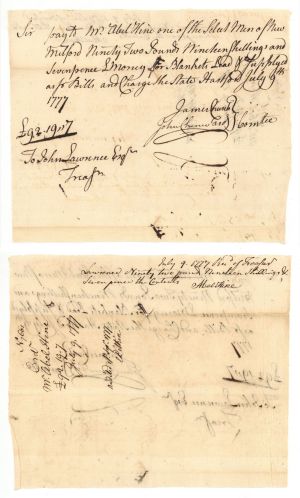 Sir
pay to Mr Abel Hine one of the Select Men of New
Milford Ninety Two Pounds Nineteen Shillings and
Sevenpence £ Money for Blankets Lead &c Supplyed
as pr Bills and Charge the State Hartford July 9th
1777
£92..19..7
To John Lawrence Esqr
Treasr
John Chenevard
Comtee
July 9 1777 Recd of Treasur
Lawrence Ninety two pound Nineteen Shillings &
Seven pence the Contents
Abel Hine
Ord
Mr Abel Hine
£92..19..7
July 9 1777